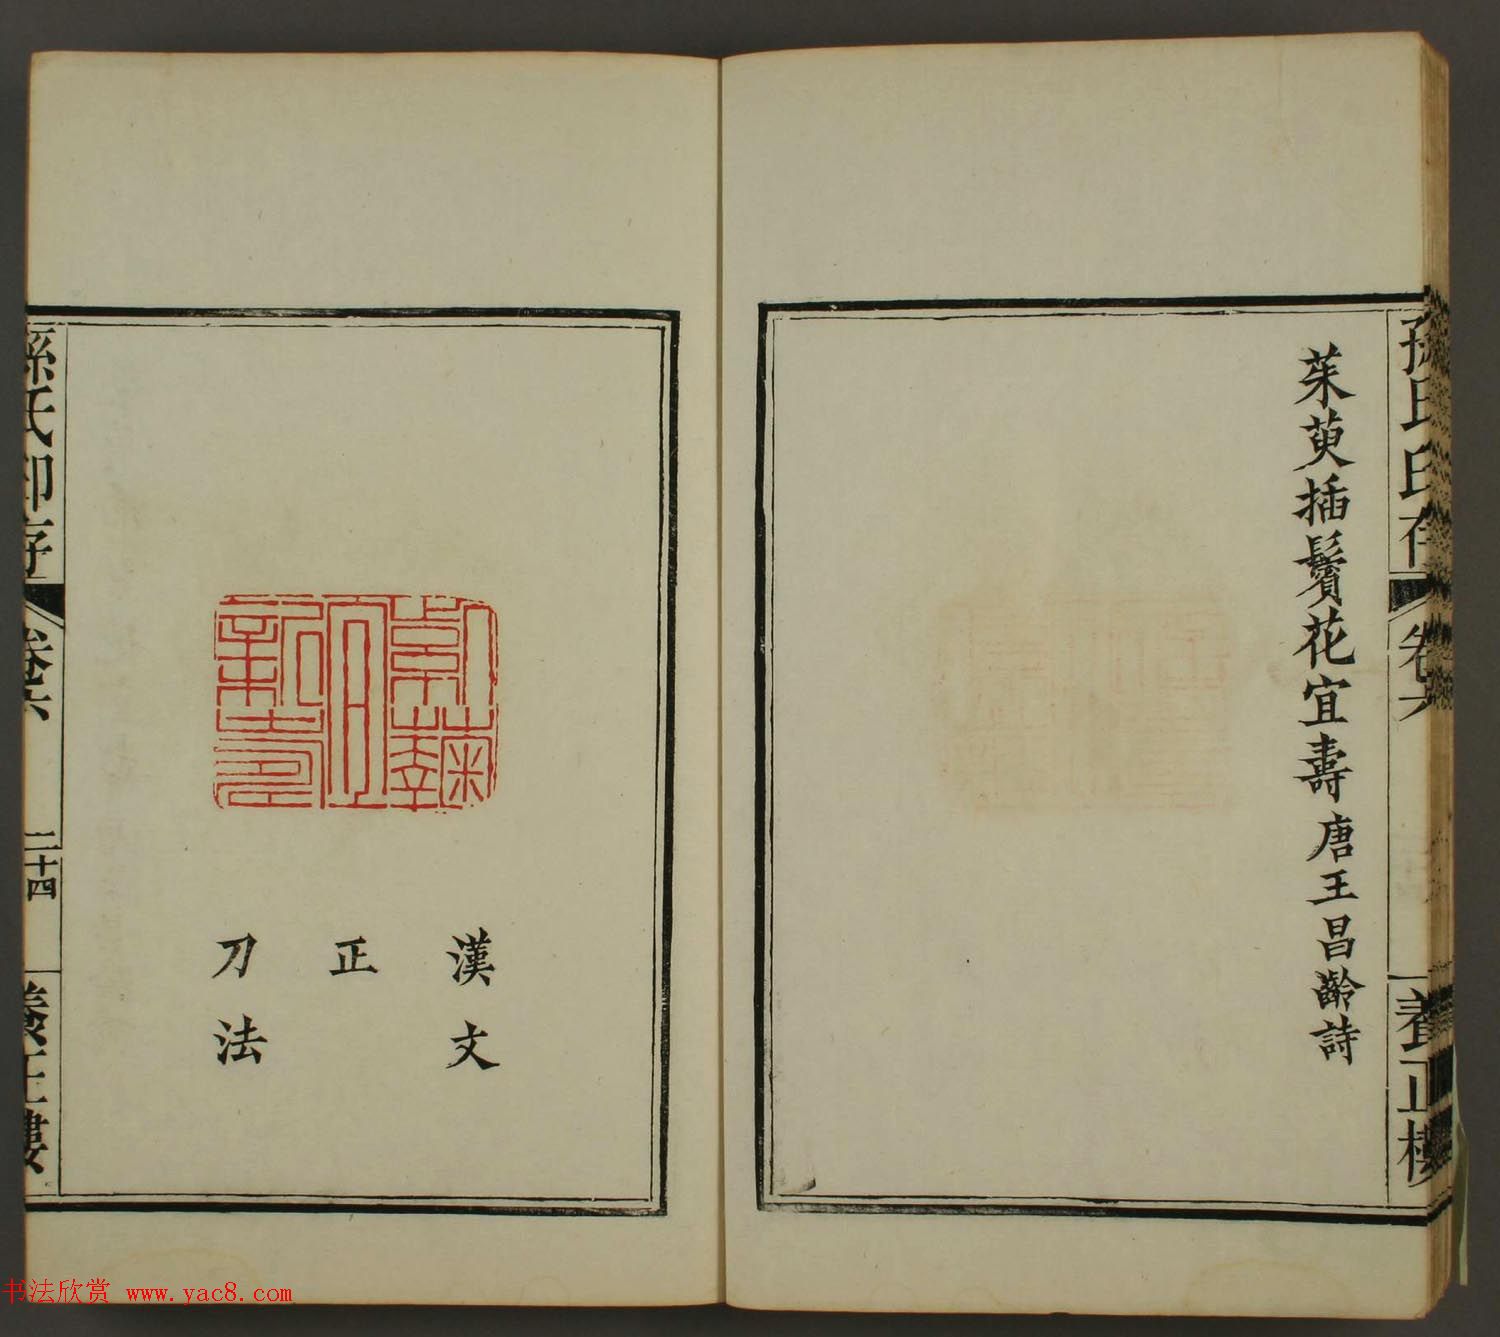 孫氏印存
卷六
養正樓
茱萸插鬢花宜壽唐王昌齡詩
漢文
正
刀法
孫氏印存
卷六
二十四
養正樓
书法欣赏 www.yac8.com